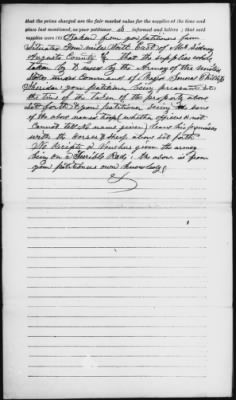 that the prices charged are the fair market value for the supplies at the time and
place last mentioned, as your petitioner is informed and believes; that said
supplies were (8) Taken from your petitioners farm
situated four miles North East of Mt Sidney
Augusta County Va that the supplies was
taken by & used by the Army of the United
States under Command of Major General Phillip H
Sheridan your petitioner being present at
the time of the taken of the property above
set forth & your petitioner being the sons
of the above named troops whether officers or not
cannot tell no name given leave his premises
with the horses & sheep above set forth.
No Receipts or Vouchers given the army
being on a Raid. The above is from
your petitioners own knowledge